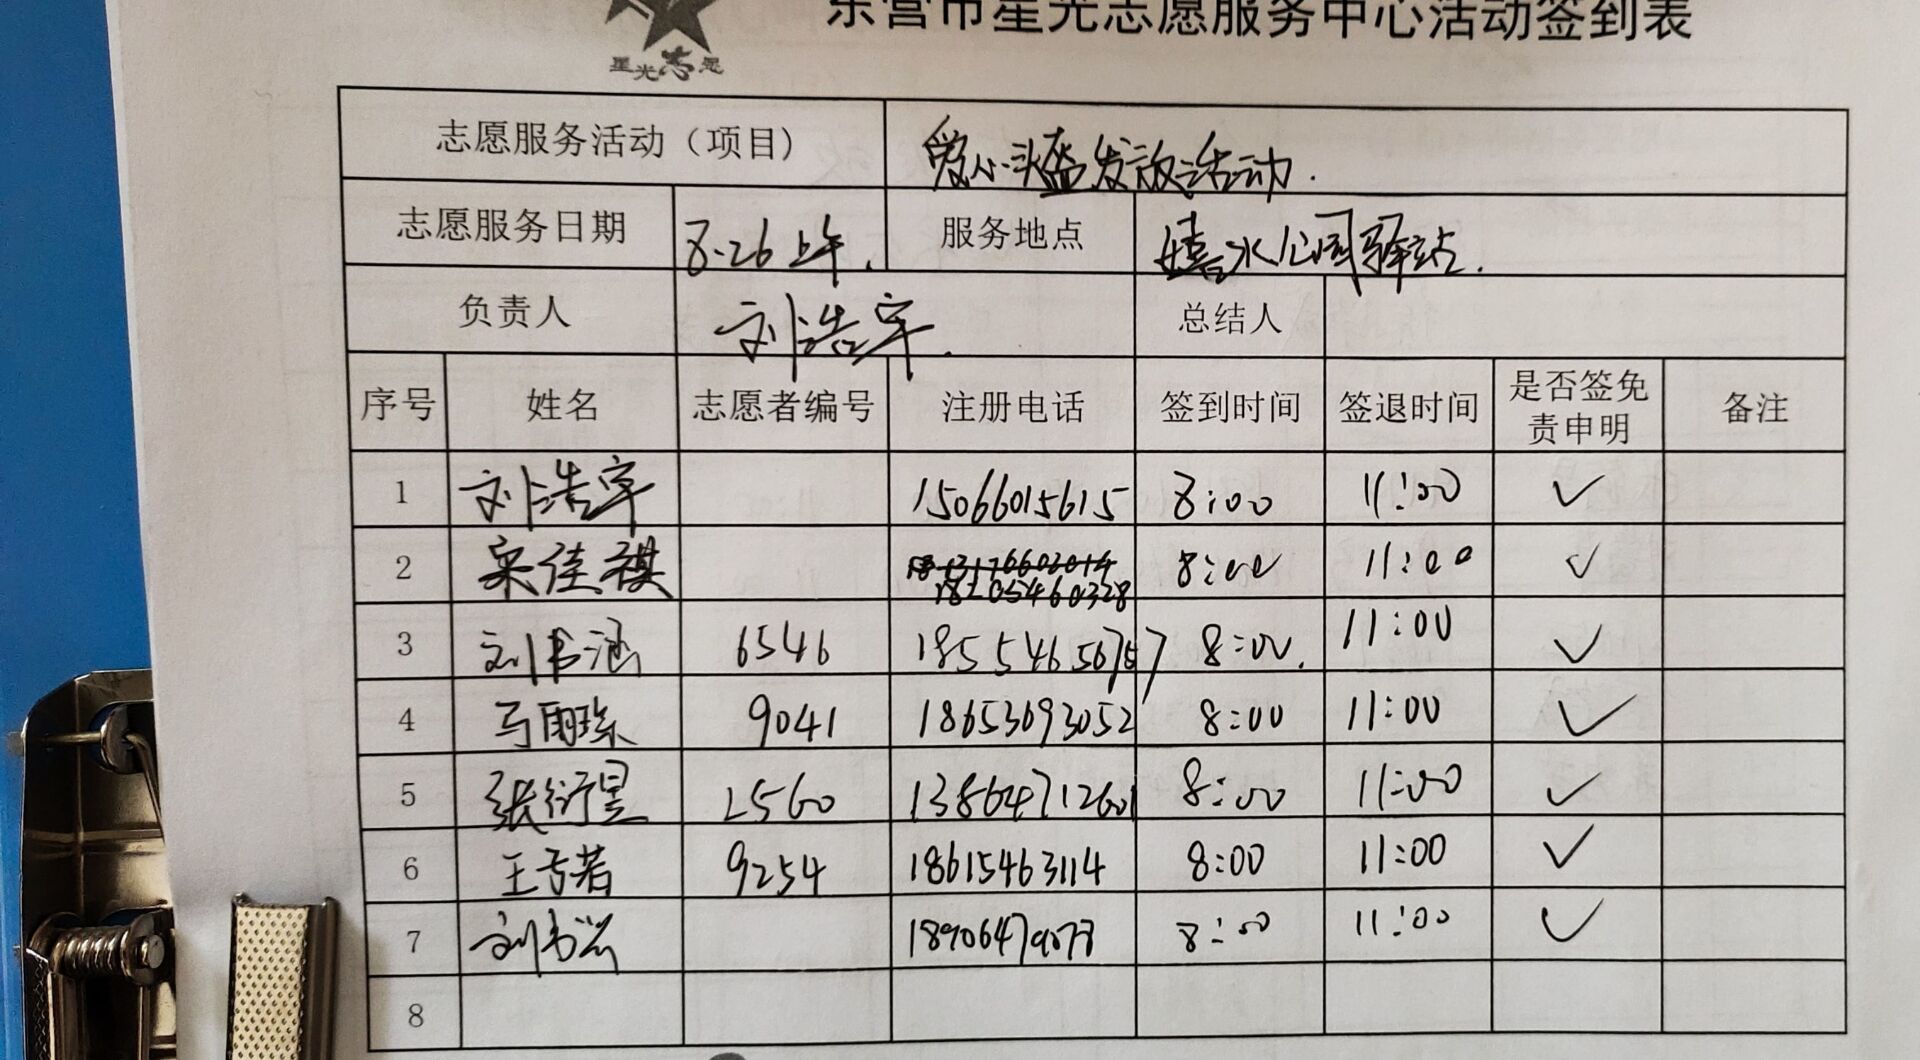 星光志愿
东营市星光志愿服务中心活动签到表
志愿服务活动（项目） 爱心头盔发放活动.
志愿服务日期 8.26上午. 服务地点 嬉水公园驿站.
负责人 刘浩宇. 总结人
序号 姓名 志愿者编号 注册电话 签到时间 签退时间 是否签免责申明 备注
1 刘浩宇 15066015615 8:00 11:00 ✓
2 宋佳祺 18205460328 8:00 11:00 ✓
3 刘书涵 6546 8:00. 11:00 ✓
4 马雨琛 9041 18653693052 8:00 11:00 ✓
5 张衍昱 2560 13864712601 8:00 11:00 ✓
6 王若 9254 18615463114 8:00 11:00 ✓
7 刘书 8:00 11:00 ✓
8